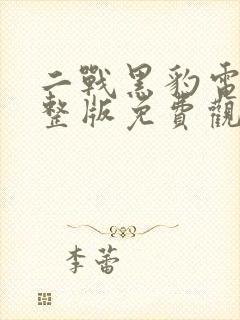 二戰黑豹電
整版免費觀
李蕾